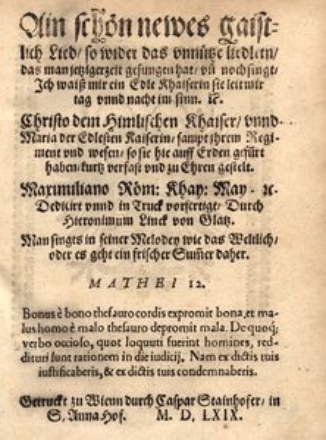 Ain schön newes gaist-
lich Lied/ so wider das vnnütze liedlein/
das man jetzigerzeit gesungen hat/ vñ noch singt/
Ich waiß mir ein Edle Khaiserin sie leit mir
tag vnnd nacht im sinn. ꝛc.
Christo dem Himlischen Khaiser/ vnnd
Maria der Edlesten Kaiserin/ sampt jhrem Regi-
ment vnd wesen/ so sie hie auff Erden gefürt
haben/ kurtz verfast vnd zu Ehren gestelt.
Maximiliano Röm: Khay: May. ꝛc.
Dedicirt vnnd in Truck verfertigt/ Durch
Hieronimum Linck von Glatz.
Man singts in seiner Melodey wie das Weltlich/
oder es geht ein frischer Sum̃er daher.
MATHEI 12.
Bonus è bono thesauro cordis expromit bona, et ma-
lus homo è malo thesauro depromit mala. De quoq;
verbo occioso, quot loquuti fuerint homines, red-
dituri sunt rationem in die iudicij. Nam ex dictis tuis
iustificaberis, & ex dictis tuis condemnaberis.
Getruckt zu Wienn durch Caspar Stainhofer/ in
S. Anna Hof. M. D. LXIX.